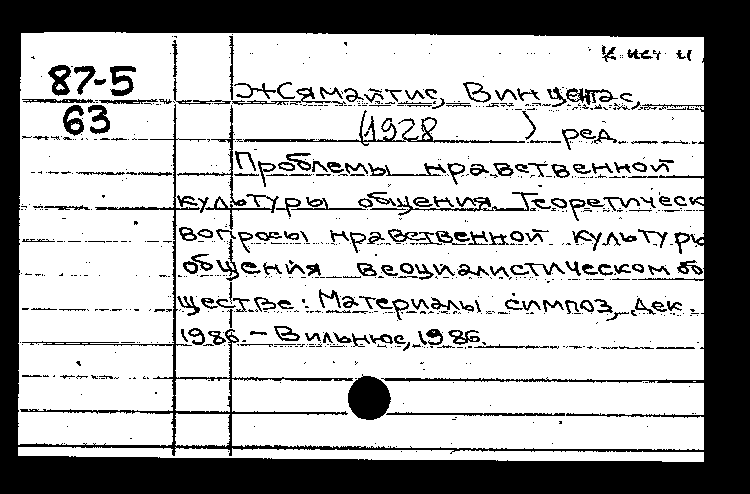 К ист и
87-5
63
Жямайтис, Винцентас,
(1928 ) ред.
Проблемы нравственной
культуры общения. Теоретическ
вопросы нравственной культуры
общения в социалистическом об
ществе: Материалы симпоз, дек.
1986. - Вильнюс, 1986.